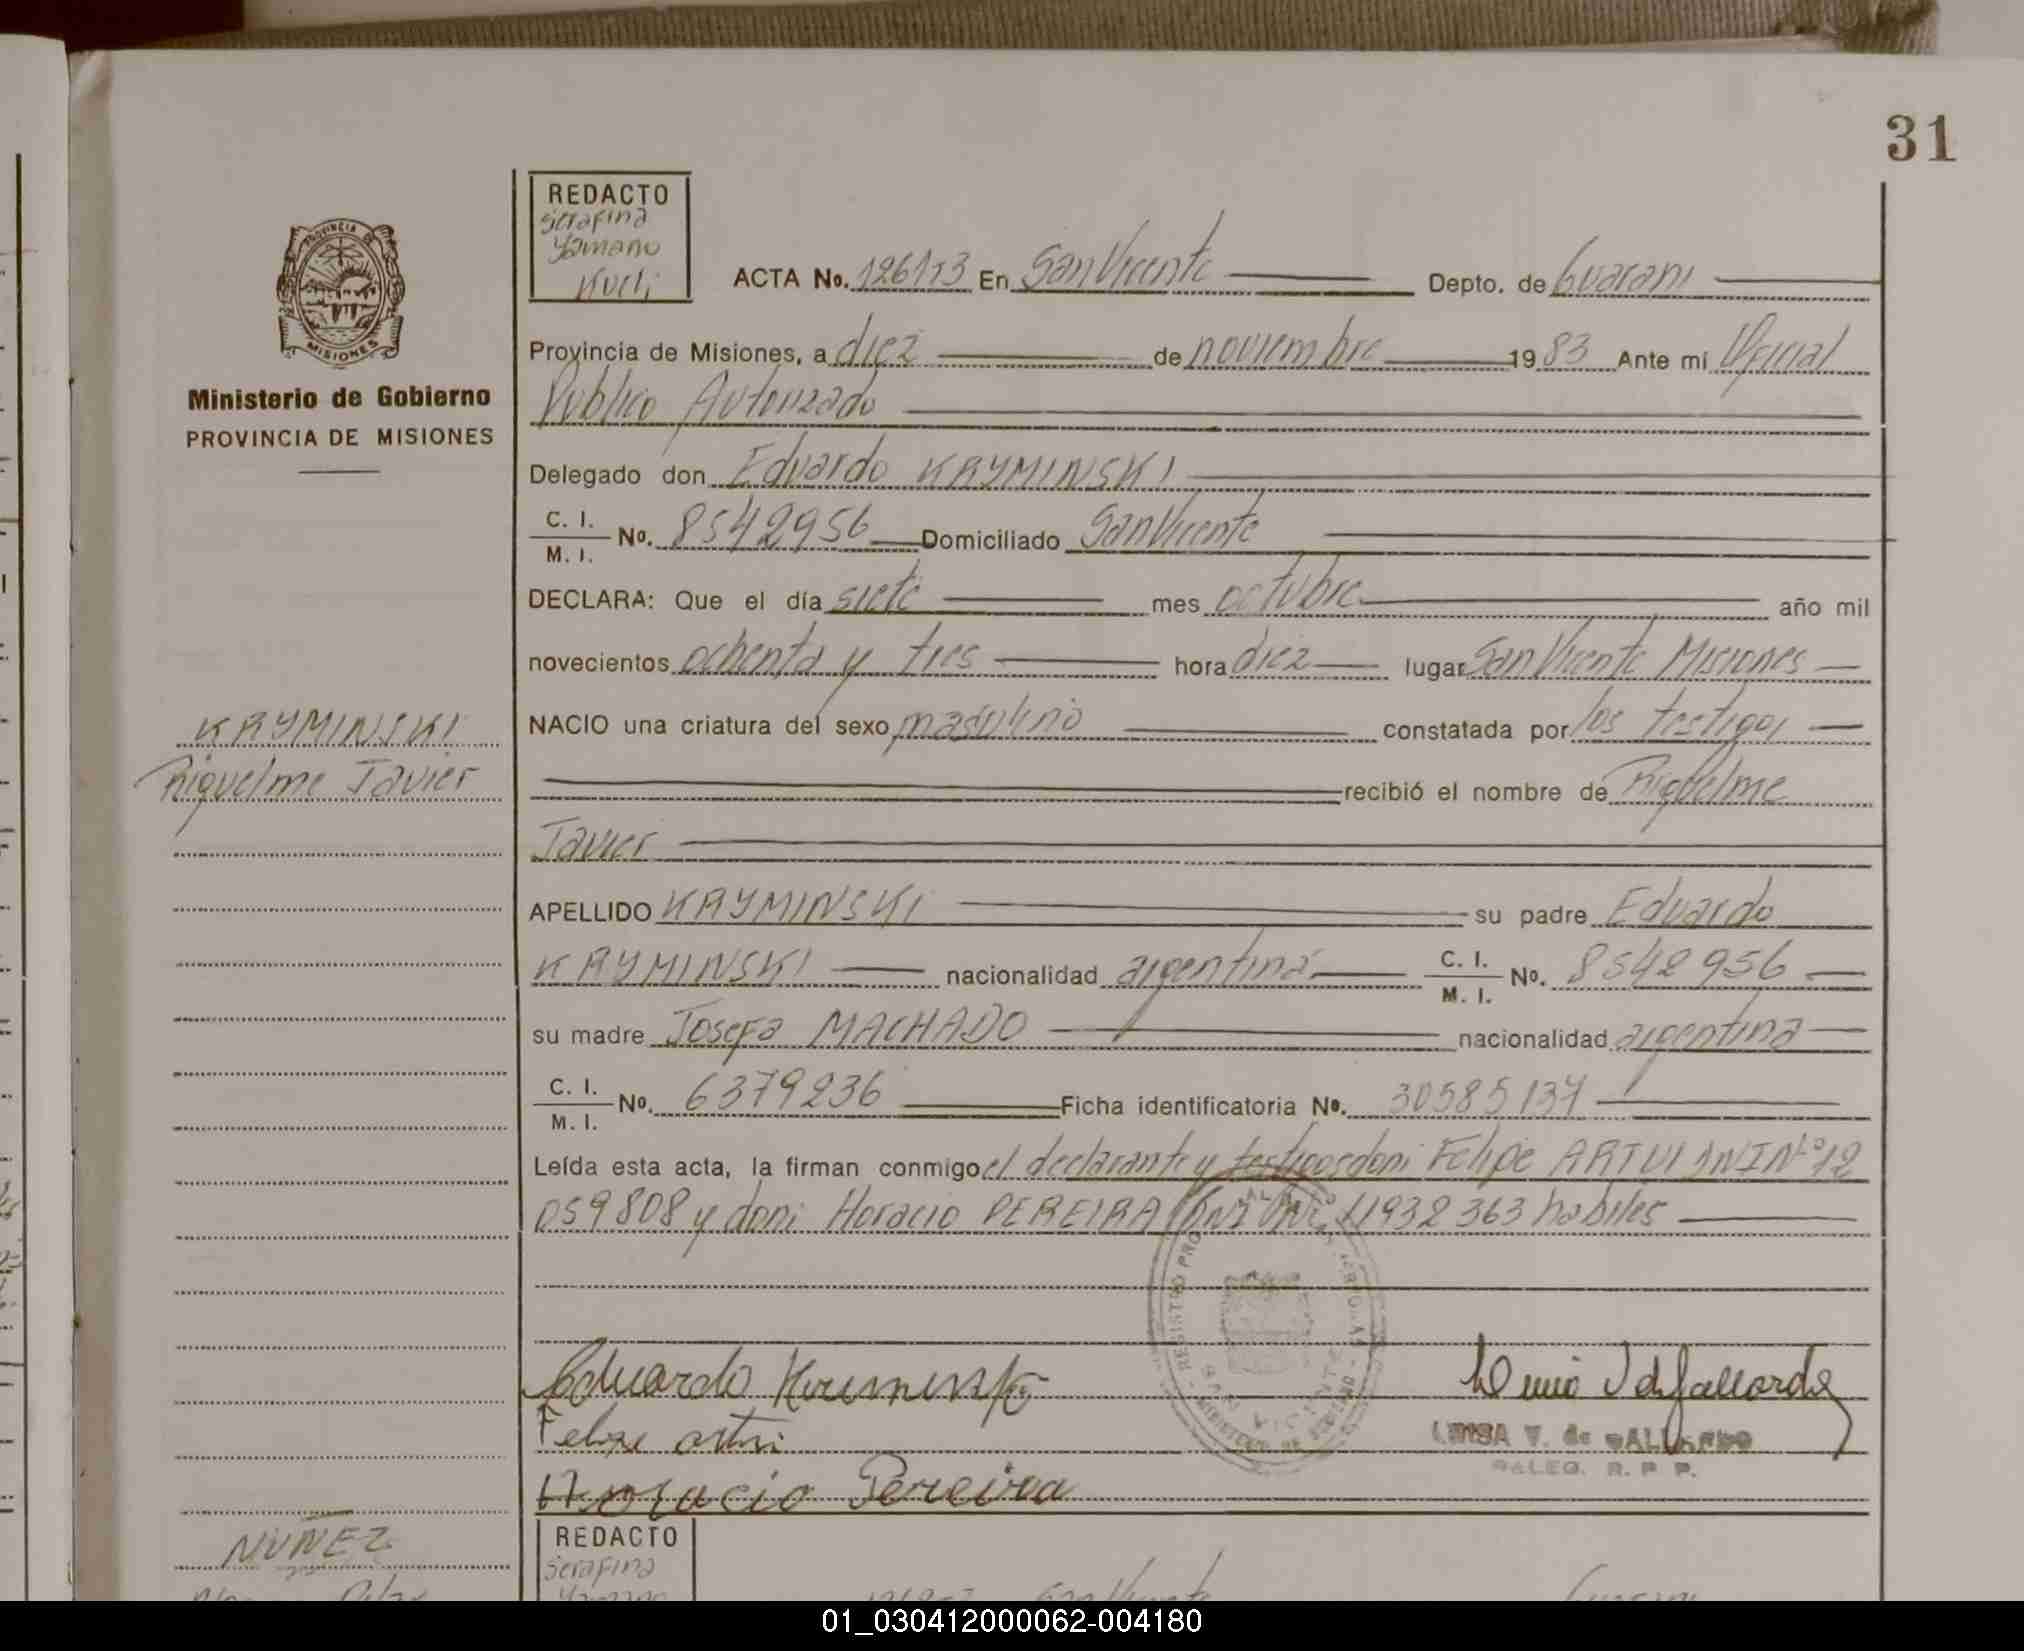 31
REDACTO
Serafina
Yamano
Kuel;
PROVINCIA DE
MISIONES
Ministerio de Gobierno
PROVINCIA DE MISIONES
ACTA No. En San Vicente Depto. de Guarani
Provincia de Misiones, a diez de noviembre 1983 Ante mi Oficial
Publico Autorizado
Delegado don Eduardo KRYMINSKI
C. I. / M. I. No. 8542956 Domiciliado San Vicente
DECLARA: Que el día siete mes octubre año mil
novecientos ochenta y tres hora diez lugar San Vicente Misiones
NACIO una criatura del sexo masculino constatada por los testigos
recibió el nombre de Riquelme
Javier
KRYMINSKI
Riquelme Javier
APELLIDO KRYMINSKI su padre Eduardo
KRYMINSKI nacionalidad argentina C. I. / M. I. No. 8542956
su madre Josefa MACHADO nacionalidad argentina
C. I. / M. I. No. 6379236 Ficha identificatoria No. 30585137
Leída esta acta, la firman conmigo el declarante y testigos don: Felipe
059808 y don: Horacio PEREIRA 11932363 habiles
SAN VICENTE
Eduardo
Felipe
Horacio Pereira
V. de GALLARDO
R. P. P.
NUÑEZ
REDACTO
Serafina
San Vicente
01_030412000062-004180